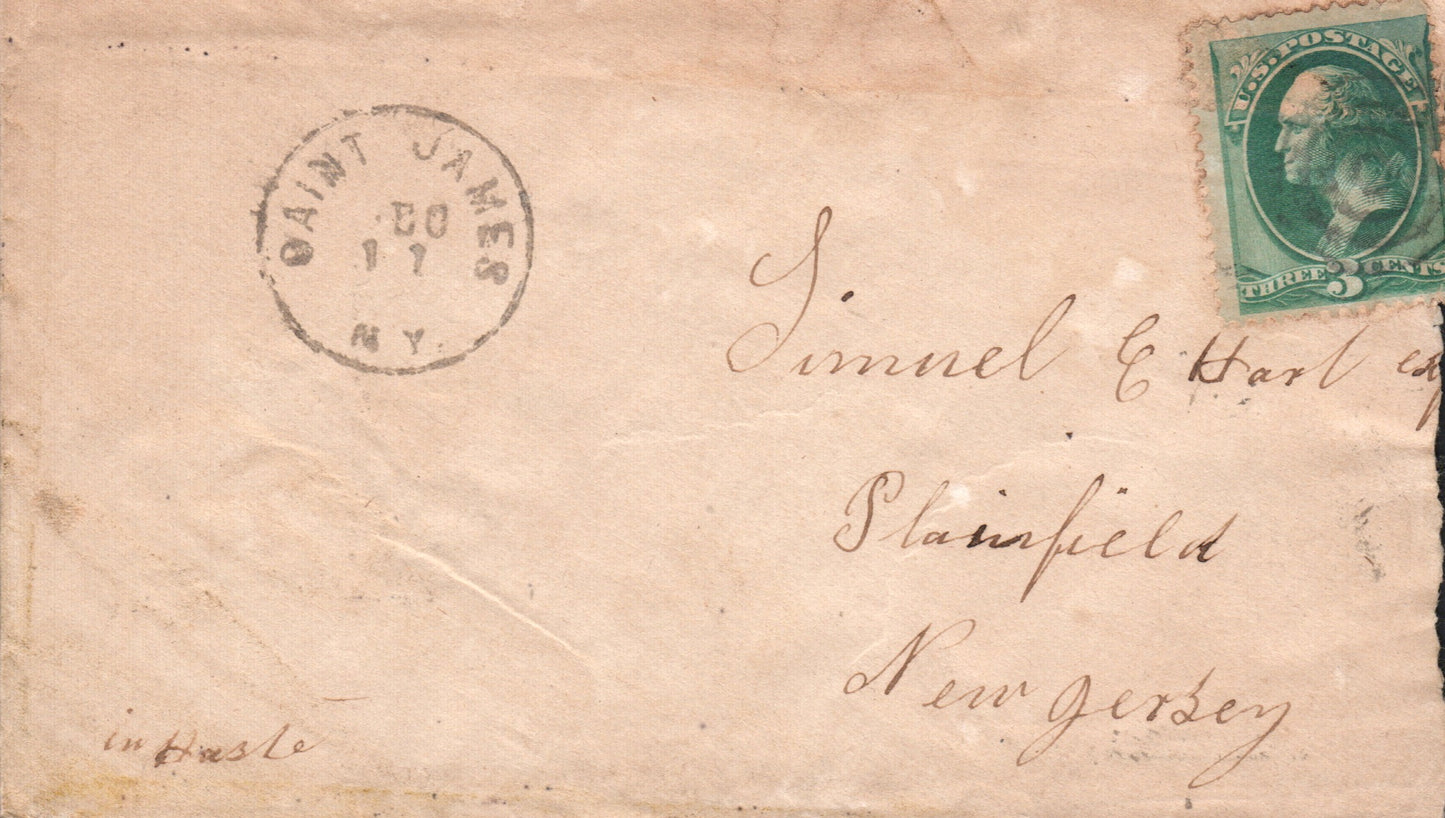 U.S. POSTAGE
THREE 3 CENTS
SAINT JAMES
17
N Y.
Simuel E Hart
Plainfield
New Jersey
in Haste